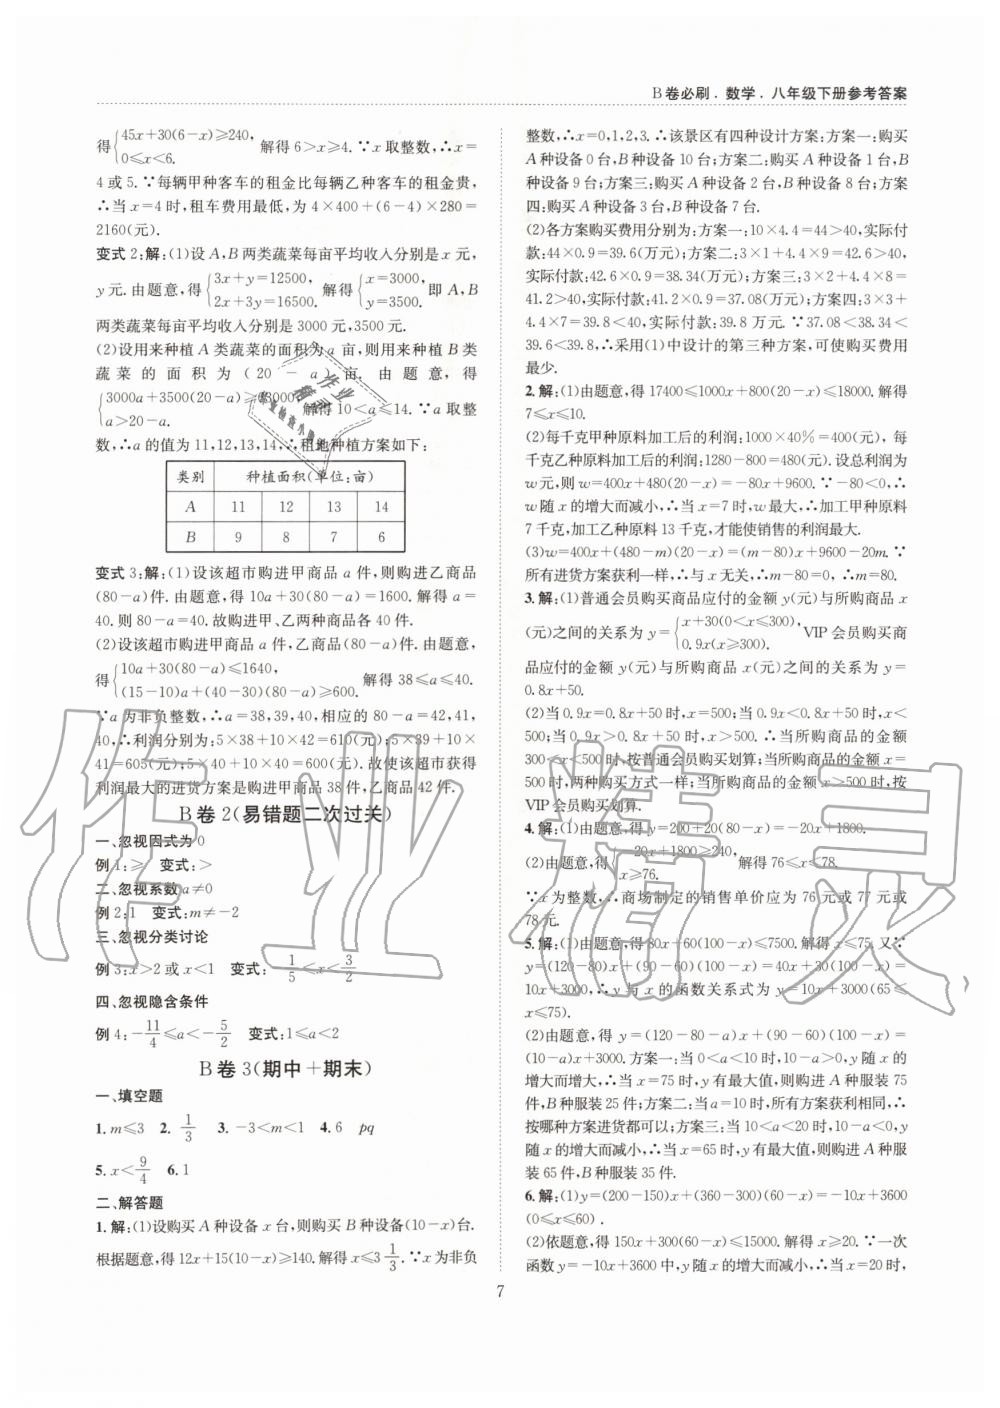 B卷必刷．数学．八年级下册参考答案
得{45x+30(6-x)≥240, 0≤x<6. 解得6>x≥4.∵x取整数,∴x=
4或5.∵每辆甲种客车的租金比每辆乙种客车的租金贵,
∴当x=4时,租车费用最低,为4×400+(6-4)×280=
2160(元).
变式2:解:(1)设A,B两类蔬菜每亩平均收入分别是x元,
y元.由题意,得{3x+y=12500, 2x+3y=16500. 解得{x=3000, y=3500. 即A,B
两类蔬菜每亩平均收入分别是3000元,3500元.
(2)设用来种植A类蔬菜的面积为a亩,则用来种植B类
蔬菜的面积为(20-a)亩.由题意,得
{3000a+3500(20-a)≥63000, a>20-a. 解得10<a≤14.∵a取整
数,∴a的值为11,12,13,14,∴租地种植方案如下:
类别 种植面积(单位:亩)
A 11 12 13 14
B 9 8 7 6
变式3:解:(1)设该超市购进甲商品a件,则购进乙商品
(80-a)件.由题意,得10a+30(80-a)=1600.解得a=
40.则80-a=40.故购进甲、乙两种商品各40件.
(2)设该超市购进甲商品a件,乙商品(80-a)件.由题意,
得{10a+30(80-a)≤1640, (15-10)a+(40-30)(80-a)≥600. 解得38≤a≤40.
∵a为非负整数,∴a=38,39,40,相应的80-a=42,41,
40,∴利润分别为:5×38+10×42=610(元);5×39+10×
41=605(元);5×40+10×40=600(元).故使该超市获得
利润最大的进货方案是购进甲商品38件,乙商品42件.
B卷2(易错题二次过关)
一、忽视因式为0
例1:≥ 变式:>
二、忽视系数a≠0
例2:1 变式:m≠-2
三、忽视分类讨论
例3:x>2或x<1 变式:1/5<x<3/2
四、忽视隐含条件
例4:-11/4≤a<-5/2 变式:1≤a<2
B卷3(期中+期末)
一、填空题
1.m≤3 2.1/3 3.-3<m<1 4.6 pq
5.x<9/4 6.1
二、解答题
1.解:(1)设购买A种设备x台,则购买B种设备(10-x)台.
根据题意,得12x+15(10-x)≥140.解得x≤3 1/3.∵x为非负
整数,∴x=0,1,2,3.∴该景区有四种设计方案:方案一:购买
A种设备0台,B种设备10台;方案二:购买A种设备1台,B
种设备9台;方案三:购买A种设备2台,B种设备8台;方案
四:购买A种设备3台,B种设备7台.
(2)各方案购买费用分别为:方案一:10×4.4=44>40,实际付
款:44×0.9=39.6(万元);方案二:3×1+4.4×9=42.6>40,
实际付款:42.6×0.9=38.34(万元);方案三:3×2+4.4×8=
41.2>40,实际付款:41.2×0.9=37.08(万元);方案四:3×3+
4.4×7=39.8<40,实际付款:39.8万元.∵37.08<38.34<
39.6<39.8,∴采用(1)中设计的第三种方案,可使购买费用
最少.
2.解:(1)由题意,得17400≤1000x+800(20-x)≤18000.解得
7≤x≤10.
(2)每千克甲种原料加工后的利润:1000×40%=400(元),每
千克乙种原料加工后的利润:1280-800=480(元).设总利润为
w元,则w=400x+480(20-x)=-80x+9600.∵-80<0,∴
w随x的增大而减小,∴当x=7时,w最大,∴加工甲种原料
7千克,加工乙种原料13千克,才能使销售的利润最大.
(3)w=400x+(480-m)(20-x)=(m-80)x+9600-20m.∵
所有进货方案获利一样,∴与x无关,∴m-80=0,∴m=80.
3.解:(1)普通会员购买商品应付的金额y(元)与所购商品x
(元)之间的关系为y={x+30(0<x≤300), 0.9x(x≥300). VIP会员购买商
品应付的金额y(元)与所购商品x(元)之间的关系为y=
0.8x+50.
(2)当0.9x=0.8x+50时,x=500;当0.9x<0.8x+50时,x<
500;当0.9x>0.8x+50时,x>500.∴当所购商品的金额
300<x<500时,按普通会员购买划算;当所购商品的金额x=500
时,两种购买方式一样;当所购商品的金额x>500时,按
VIP会员购买划算.
4.解:(1)由题意,得y=200+20(80-x)=-20x+1800.
(2)由题意,得{-20x+1800≥240, x≥76. 解得76≤x≤78.
∵x为整数,∴商场制定的销售单价应为76元或77元或
78元.
5.解:(1)由题意,得80x+60(100-x)≤7500.解得x≤75.又∵
y=(120-80)x+(90-60)(100-x)=40x+3000-30x=
10x+3000,∴y与x的函数关系式为y=10x+3000(65≤
x≤75).
(2)由题意,得y=(120-80-a)x+(90-60)(100-x)=
(10-a)x+3000.方案一:当0<a<10时,10-a>0,y随x的
增大而增大,∴当x=75时,y有最大值,则购进A种服装75
件,B种服装25件;方案二:当a=10时,所有方案获利相同,∴
按哪种方案进货都可以;方案三:当10<a<20时,10-a<0,y
随x的增大而减小,∴当x=65时,y有最大值,则购进A种服
装65件,B种服装35件.
6.解:(1)y=(200-150)x+(360-300)(60-x)=-10x+3600
(0≤x≤60).
(2)依题意,得150x+300(60-x)≤15000.解得x≥20.∵一次
函数y=-10x+3600中,y随x的增大而减小,∴当x=20时,
7
作业精灵